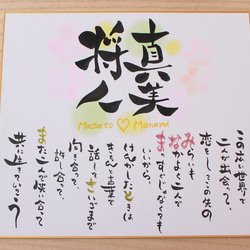 真美
将人
Masato ♡ Manami
この広い世界で
二人が出会って、
恋をしてこの先の
みらい
なかよく二人で
まっすぐじゃなくても
いいから、
けんかしたときは
きちんと言葉で
話して
向き合って
許し合って、
また二人で笑い合って
共に生きていこう